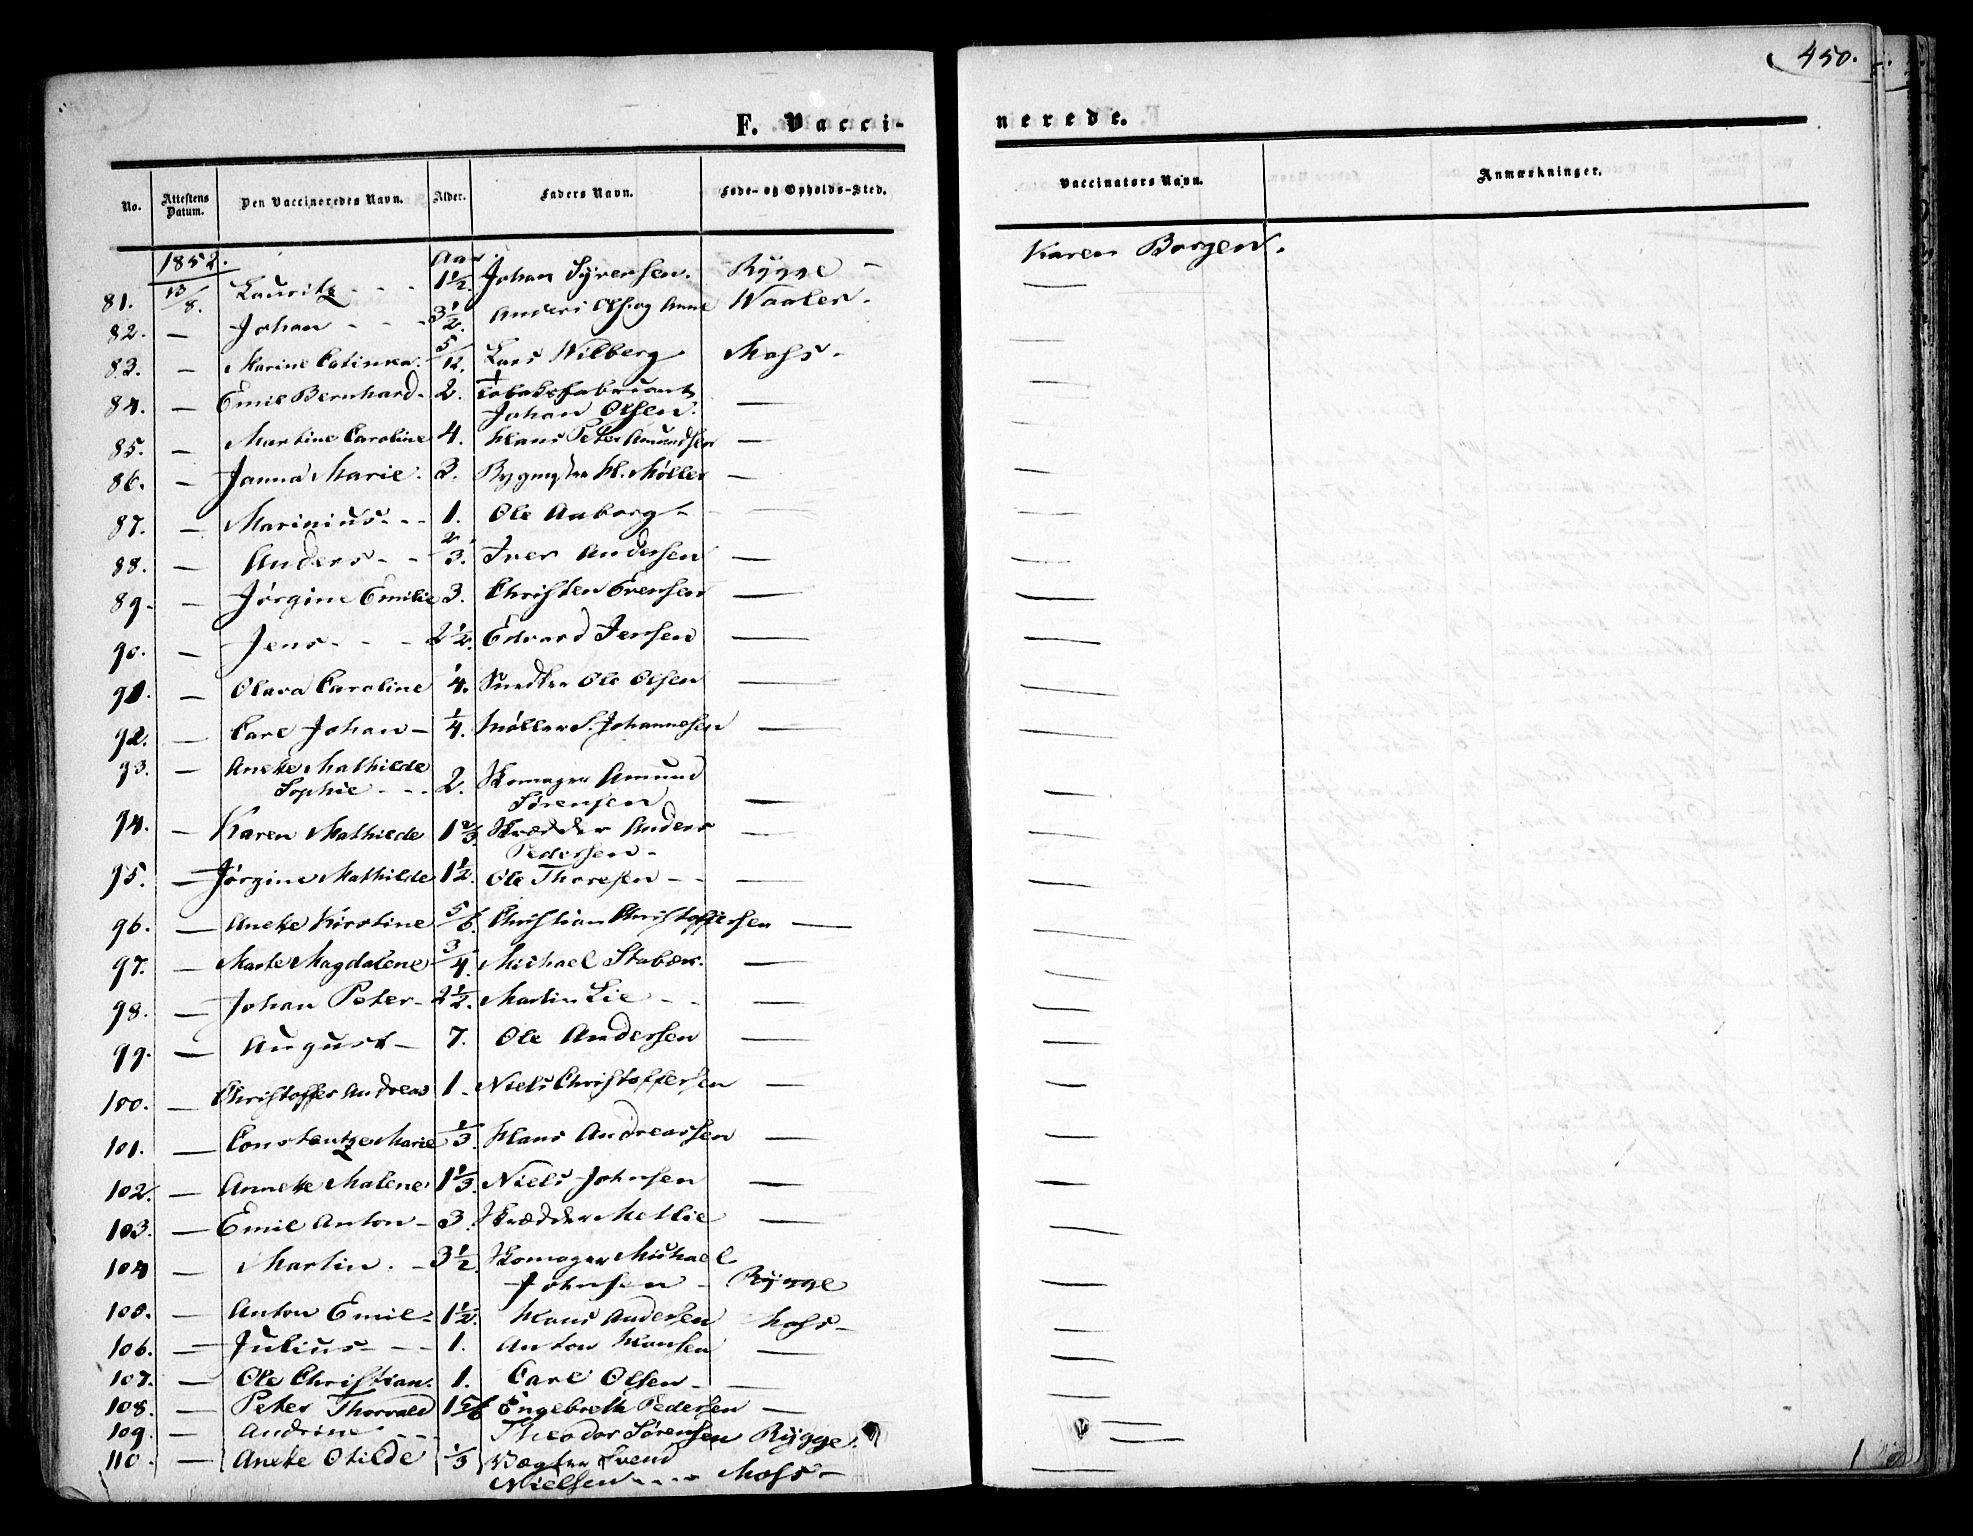 450.
F. Vacci-
nerede.
No. Attestens Datum. Den Vaccineredes Navn. Alder. Faders Navn. Føde- og Opholds-Sted. Vaccinators Navn. Anmærkninger.
1852. Aar
81. 13/8. Lauritz - - - 1½. Johan Syversen. Rygge - Karen Borgen.
82. — Johan - - - 3½. Anders Ols: og Anne Waaler. —
83. — Marine Catinka. 5/12. Lars Wilberg Moss - —
84. — Emil Bernhard - 2. Tobaksfabricant
Johan Olsen. — —
85. — Martine Caroline 4. Hans Peter Amundsen — —
86. — Janna Marie. 3. Bygmester H. Møller — —
87. — Marinius - - - 1. Ole Aaborg - — —
88. — Anders - - 2/3. Iver Andersen — —
89. — Jørgine Emilie 3. Christen Evensen — —
90. — Jens - - - 2½. Edvard Jensen — —
91. — Olava Caroline ¼. Snedker Ole Olsen — —
92. — Carl Johan - ¼. Møller S. Johannesen — —
93. — Anete Mathilde
Sophie - - - 2. Skomager Amund
Sørensen — —
94. — Karen Mathilde 1 2/3. Skrædder Anders
Pedersen - — —
95. — Jørgine Mathilde 1½. Ole Thoresen - - — —
96. — Anete Kirstine 5/6. Christian Christoffersen — —
97. — Marte Magdalene 3/4. Michael Stabæk. — —
98. — Johan Peter - 2½. Martin Lie - - — —
99. — August - 7. Ole Andersen — —
100. — Christoffer Andreas 1 - Niels Christoffersen — —
101. — Constantze Marie 1/3. Hans Andreassen — —
102. — Annete Malene 1 1/3. Niels Johnsen — —
103. — Emil Anton - 3. Skrædder Metlie — —
104 — Martin. - 3½. Skomager Michael
Johnsen - Rygge —
105. — Anton Emil - 1½. Hans Andersen Moss - —
106. — Julius - - - 1. Anton Hansen — —
107. — Ole Christian. 1. Carl Olsen - — —
108. — Peter Thorvald 1 5/6 Engebreth Pedersen — —
109. — Andrine - - - Theodor Sørensen Rygge. —
110. — Anete Otilde 1/3 Vægter Svend
Nielsen - - - - Moss - —